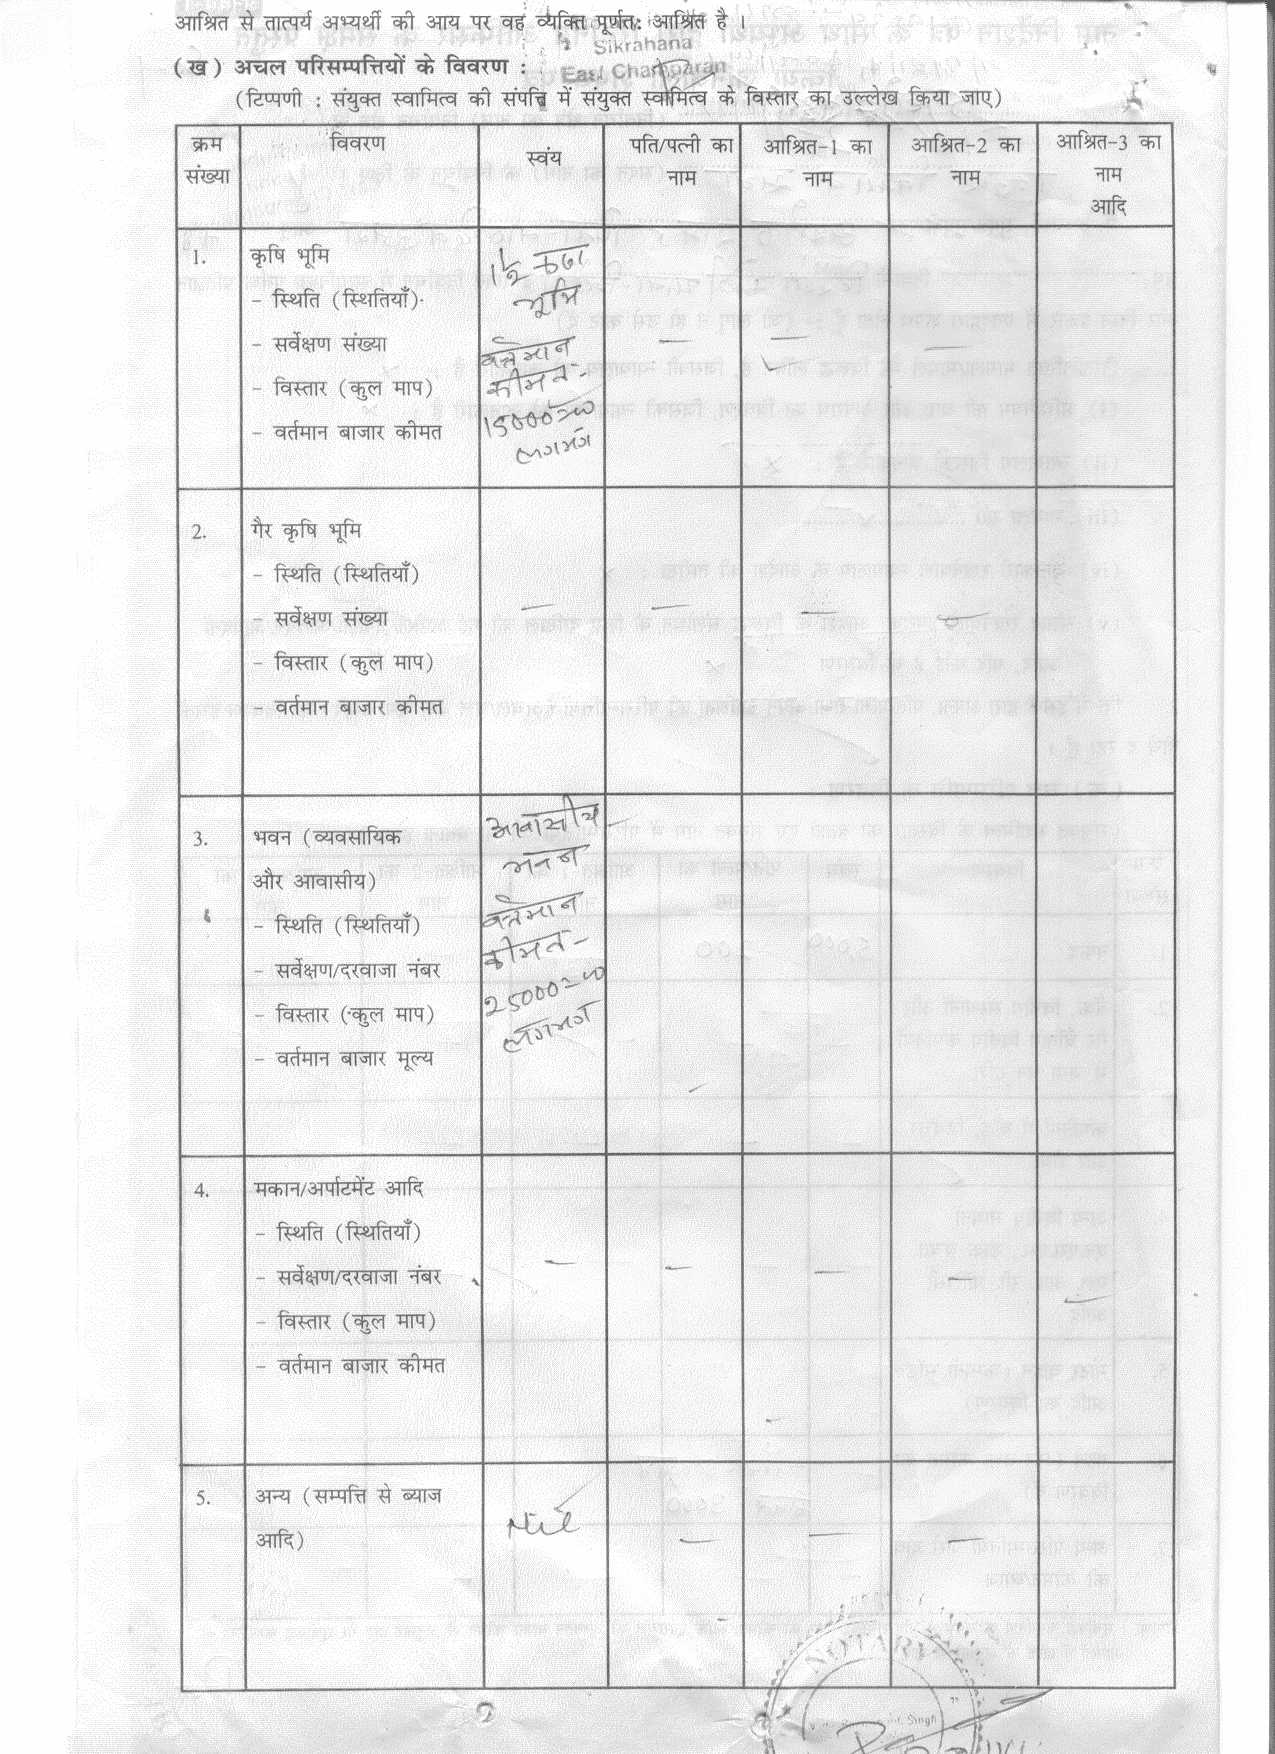 आश्रित से तात्पर्य अभ्यर्थी की आय पर वह व्यक्ति पूर्णत: आश्रित है ।
Sikrahana
East Champaran
(ख) अचल परिसम्पत्तियों के विवरण :
(टिप्पणी : संयुक्त स्वामित्व की संपत्ति में संयुक्त स्वामित्व के विस्तार का उल्लेख किया जाए)
क्रम संख्या विवरण स्वंय पति/पत्नी का नाम आश्रित-1 का नाम आश्रित-2 का नाम आश्रित-3 का नाम आदि
1. कृषि भूमि
- स्थिति (स्थितियाँ)
- सर्वेक्षण संख्या
- विस्तार (कुल माप)
- वर्तमान बाजार कीमत
1½ कठा
भूमि
वर्त्तमान
कीमत -
15000=00
लगभग
2. गैर कृषि भूमि
- स्थिति (स्थितियाँ)
सर्वेक्षण संख्या
- विस्तार (कुल माप)
- वर्तमान बाजार कीमत
3. भवन (व्यवसायिक
और आवासीय)
- स्थिति (स्थितियाँ)
- सर्वेक्षण/दरवाजा नंबर
- विस्तार (कुल माप)
- वर्तमान बाजार मूल्य
आवासीय
भवन
वर्त्तमान
कीमत -
25000=00
लगभग
4. मकान/अर्पाटमेंट आदि
- स्थिति (स्थितियाँ)
- सर्वेक्षण/दरवाजा नंबर
- विस्तार (कुल माप)
- वर्तमान बाजार कीमत
5. अन्य (सम्पत्ति से ब्याज
आदि)
Nil
NOTARY
Singh